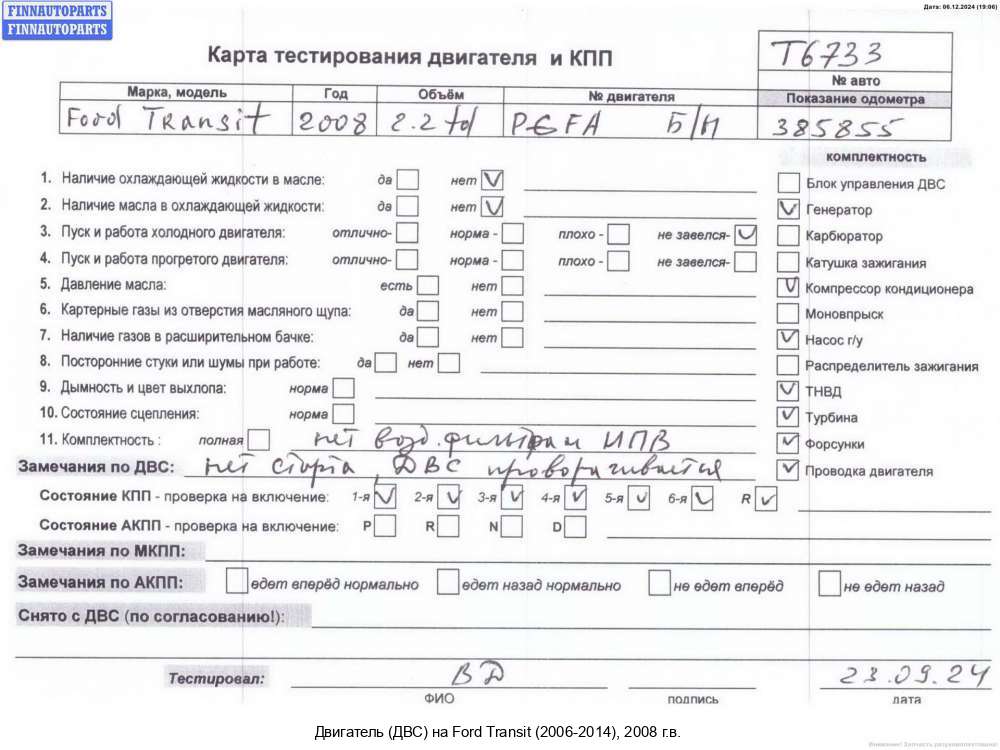 FINNAUTOPARTS
FINNAUTOPARTS
Дата: 06.12.2024 (19:06)
Карта тестирования двигателя и КПП
T6733
№ авто
Марка, модель Год Объём № двигателя Показание одометра
Ford Transit 2008 2.2 td PGFA Б/Н 385855
комплектность
1. Наличие охлаждающей жидкости в масле: да нет
Блок управления ДВС
2. Наличие масла в охлаждающей жидкости: да нет
Генератор
3. Пуск и работа холодного двигателя: отлично- норма - плохо - не завелся-
Карбюратор
4. Пуск и работа прогретого двигателя: отлично- норма - плохо - не завелся-
Катушка зажигания
5. Давление масла: есть нет
Компрессор кондиционера
6. Картерные газы из отверстия масляного щупа: да нет
Моновпрыск
7. Наличие газов в расширительном бачке: да нет
Насос г/у
8. Посторонние стуки или шумы при работе: да нет
Распределитель зажигания
9. Дымность и цвет выхлопа: норма
ТНВД
10. Состояние сцепления: норма
Турбина
11. Комплектность : полная нет возд. фильтра и ИПВ
Форсунки
Замечания по ДВС: нет старта, ДВС проворачивается
Проводка двигателя
Состояние КПП - проверка на включение: 1-я 2-я 3-я 4-я 5-я 6-я R
Состояние АКПП - проверка на включение: P R N D
Замечания по МКПП:
Замечания по АКПП: едет вперёд нормально едет назад нормально не едет вперёд не едет назад
Снято с ДВС (по согласованию!):
Тестировал: ВД 23.09.24
ФИО подпись дата
Двигатель (ДВС) на Ford Transit (2006-2014), 2008 г.в.
Внимание! Запчасть разукомплектована!